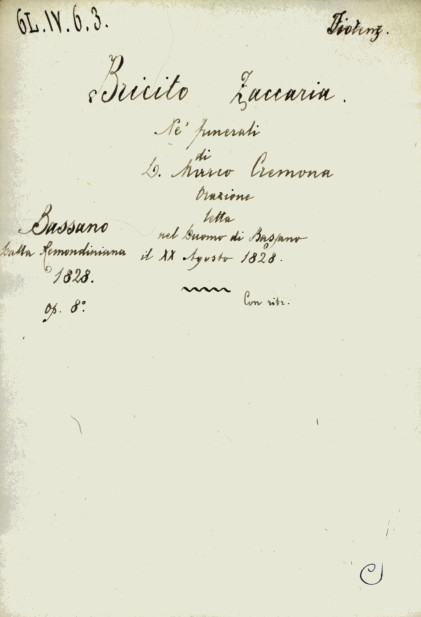 6L.IV.6.3.
Bricito Zaccaria.
Ne' funerali
di
D. Marco Cremona
Orazione
letta
nel Duomo di Bassano
il XX Agosto 1828.
Bassano
Dalla Remondiniana
1828.
op. 8°
Con ritr.